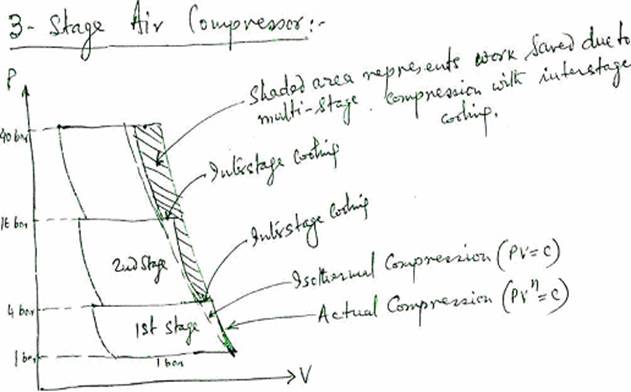 3- Stage Air Compressor:-
P
Shaded area represents work saved due to
multi-stage compression with interstage
cooling.
40 bar
Interstage cooling
16 bar
Interstage cooling
2nd Stage
Isothermal Compression (PV=C)
4 bar
Actual Compression (PVⁿ=C)
1st Stage
1 bar
1 bar
V